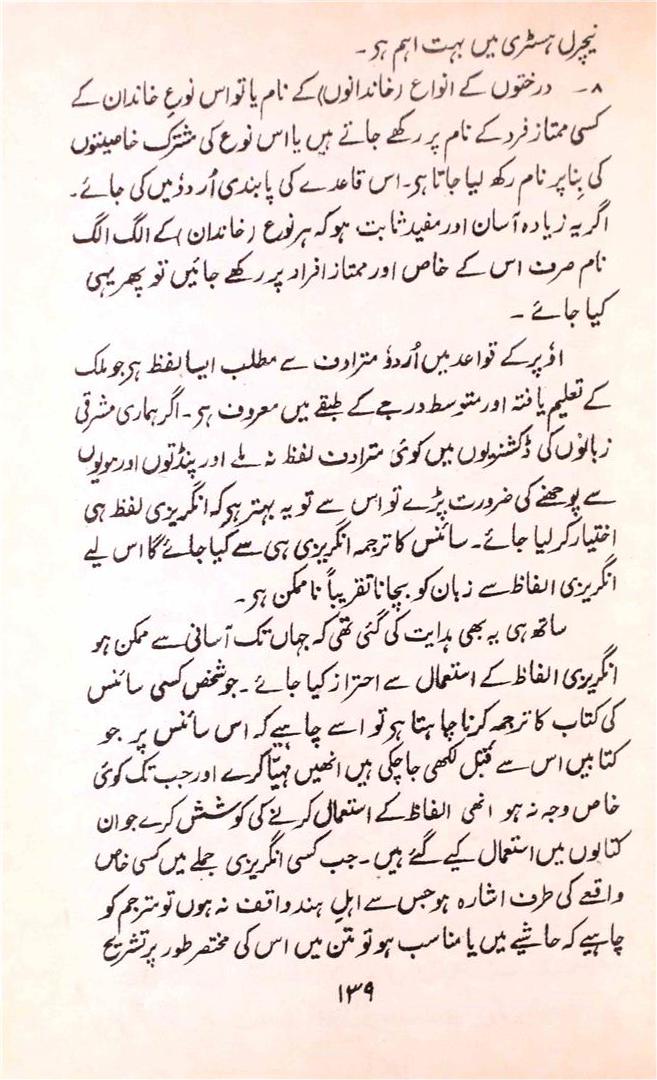 نیچرل ہسٹری میں بہت اہم ہر۔
۸۔ درختوں کے انواع (خاندانوں) کے نام یا تو اس نوعِ خاندان کے
کسی ممتاز فرد کے نام پر رکھے جاتے ہیں یا اس نوع کی مشترک خاصیتوں
کی بِنا پر نام رکھ لیا جاتا ہر۔ اس قاعدے کی پابندی اُردوٗ میں کی جائے۔
اگر یہ زیادہ آسان اور مفید ثابت ہو کہ ہر نوع (خاندان) کے الگ الگ
نام صرف اس کے خاص اور ممتاز افراد پر رکھے جائیں تو پھر یہی
کیا جائے۔
اوٗپر کے قواعد میں اُردوٗ مترادف سے مطلب ایسا لفظ ہر جو ملک
کے تعلیم یافتہ اور متوسط درجے کے طبقے میں معروف ہر۔ اگر ہماری مشرقی
زبانوں کی ڈکشنریوں میں کوئی مترادف لفظ نہ ملے اور پنڈتوں اور مولویوں
سے پوچھنے کی ضرورت پڑے تو اس سے تو یہ بہتر ہر کہ انگریزی لفظ ہی
اختیار کر لیا جائے۔ سائنس کا ترجمہ انگریزی ہی سے کیا جائے گا اس لیے
انگریزی الفاظ سے زبان کو بچانا تقریباً ناممکن ہر۔
ساتھ ہی یہ بھی ہدایت کی گئی تھی کہ جہاں تک آسانی سے ممکن ہو
انگریزی الفاظ کے استعمال سے احتراز کیا جائے۔ جو شخص کسی سائنس
کی کتاب کا ترجمہ کرنا چاہتا ہر تو اسے چاہیے کہ اس سائنس پر جو
کتابیں اس سے قبل لکھی جا چکی ہیں انھیں مہیّا کرے اور جب تک کوئی
خاص وجہ نہ ہو انھی الفاظ کے استعمال کرنے کی کوشش کرے جو ان
کتابوں میں استعمال کیے گئے ہیں۔ جب کسی انگریزی جملے میں کسی خاص
واقعے کی طرف اشارہ ہو جس سے اہلِ ہند واقف نہ ہوں تو مترجم کو
چاہیے کہ حاشیے میں یا مناسب ہو تو متن میں اس کی مختصر طور پر تشریح
۱۳۹